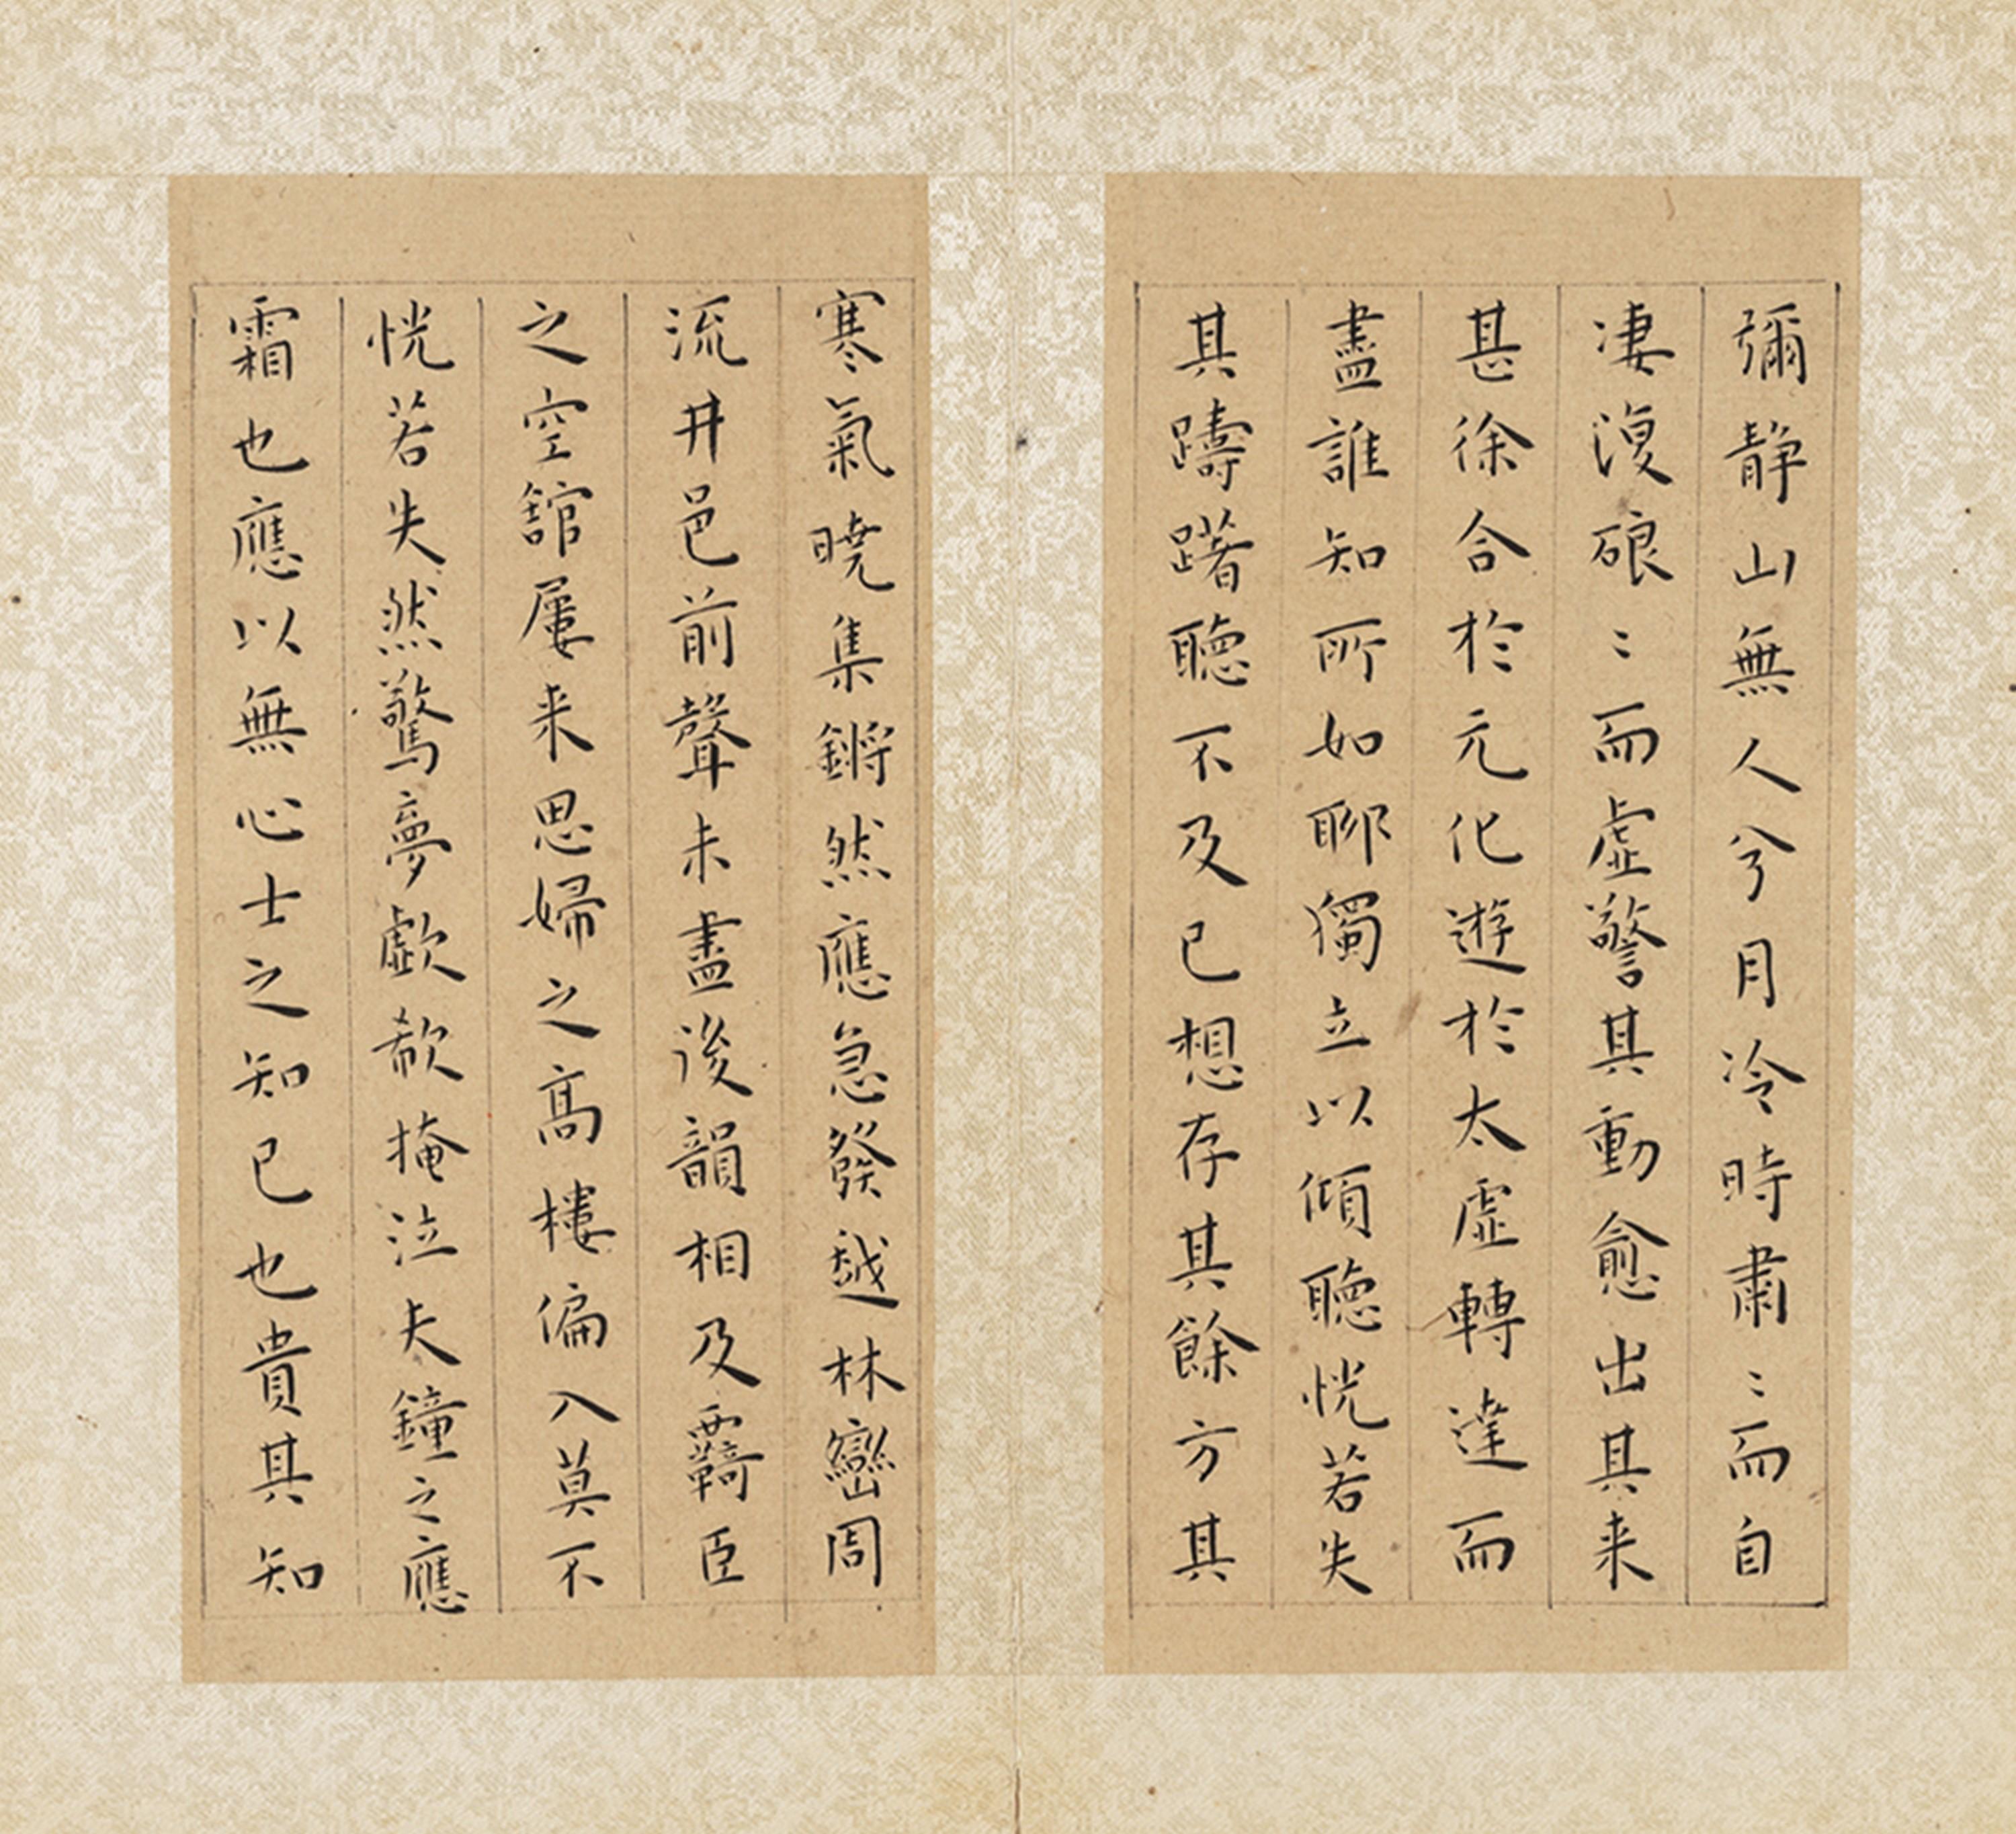 彌静山無人兮月冷時肅〻而自
凄澓硠〻而虛警其動愈出其来
甚徐合於元化遊於太虛轉達而
盡誰知所如聊獨立以傾聽恍若失
其躊躇聽不及已想存其餘方其
寒氣曉集鏘然應急發越林巒周
流井邑前聲未盡後韻相及羇臣
之空館屢来思婦之高樓偏入莫不
恍若失然驚夢歔欷掩泣夫鐘之應
霜也應以無心士之知已也貴其知